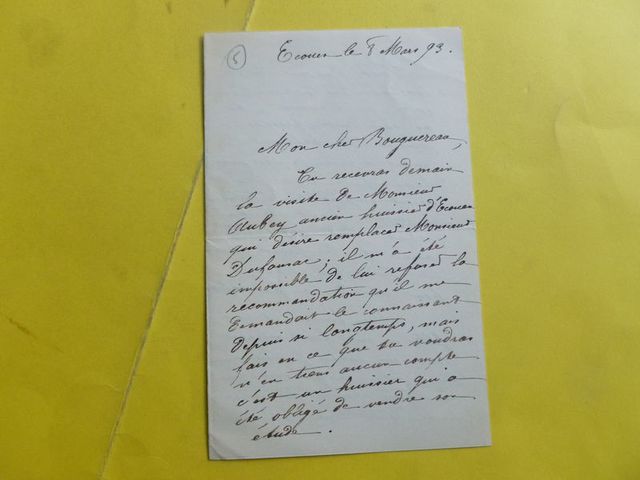 5
Ecouen le 8 Mars 93.
Mon cher Bouguereau,
Tu recevras demain
la visite de Monsieur
Aubey ancien huissier d'Ecouen
qui désire remplacer Monsieur
Dufossac; il m'a été
impossible de lui refuser la
recommandation qu'il me
demandait le connaissant
depuis si longtemps, mais
fais en ce que tu voudras
n'en tiens aucun compte
c'est un huissier qui a
été obligé de vendre son
étude.